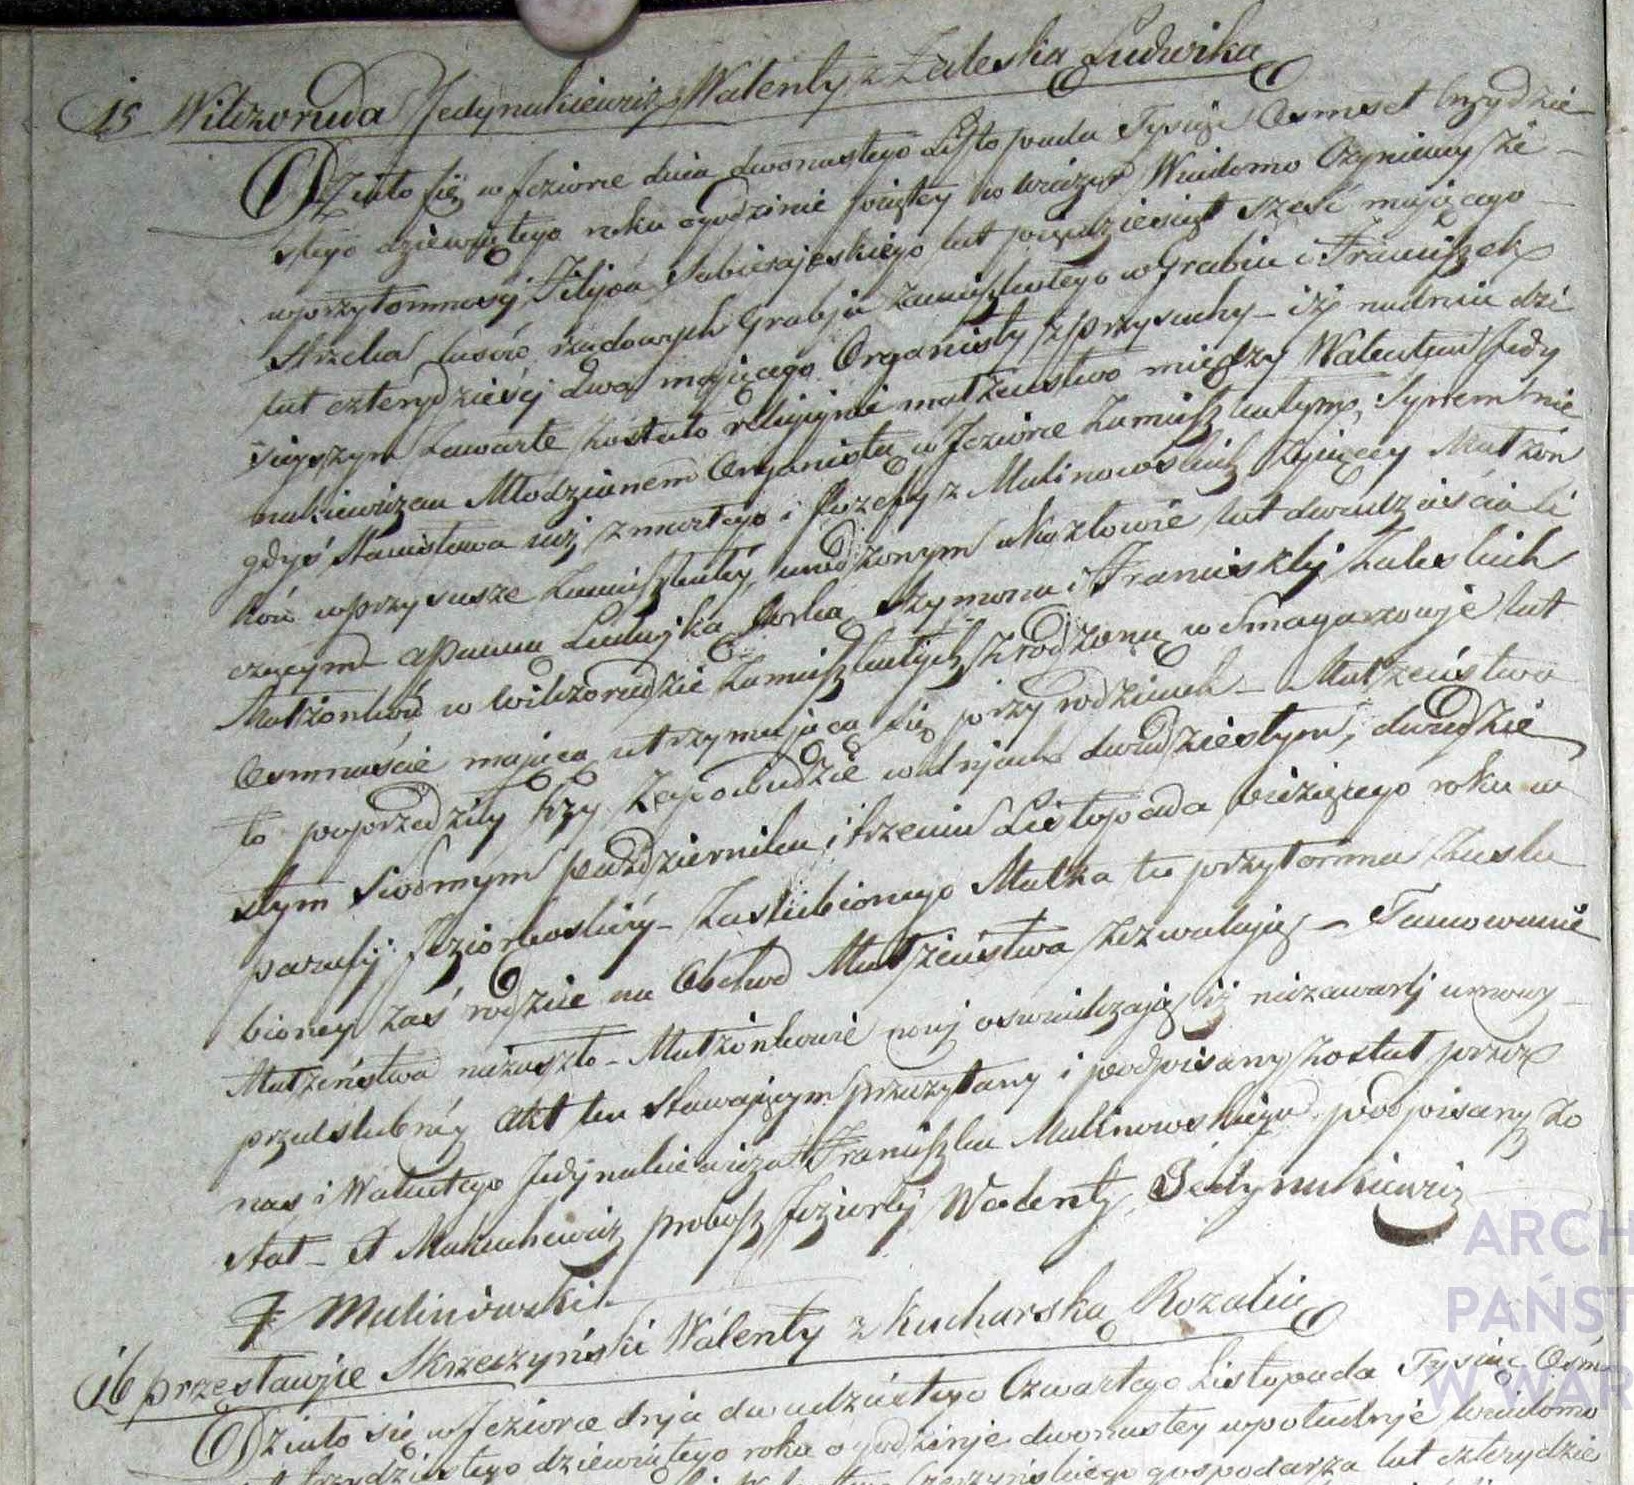 15 Wilczoruda Jedynakiewicz Walenty z Zaleską Ludwiką
Działo się w Jeziorce dnia dwunastego Listopada Tysiąc Osmset trzydzie
stego dziewiątego roku o godzinie piątey w wieczor Wiadomo Czyniemy że
w przytomnosci Filipa lat pięcdziesiąt szesć mającego
strzelca lasów rządowych Grabia zamieszkałego w Grabiu i Franciszek
lat czterydzieści dwa mającego Organisty z Przysuchy – iż na dniu dzi
sieyszym zawarte zostało religijnie małżeństwo między Walentym Jedy
nakiewiczem Młodzianem Organistą w Jeziorce Zamieszkałym, Synem nie
gdyś Stanisława iuż zmarłego i Jozefy z Malinowskich żyiącey Małżon
ków w Przysusze zamieszkałéy, urodzonym w Kozłowie lat dwadzieścia li
czącym a Panną Ludwiką córką Szymona i Franciszki Zaleskich
Małżonków w Wilczorudzie zamieszkałych zrodzoną w Smagorzowie lat
Osmnaście mającą utrzymującą się przy rodzicach – Małżeństwo
to poprzedziły trzy Zapowiedzie w dniach dwudziestym, dwudzie
stym siodmym października, i trzecim Listopada bieżącego roku w
parafij Jeziorkoskiéy – Zaslubionego Matka tu przytomna Zaslu
bioney zaś rodzice na Obchod Małżeństwa zezwalają – Tamowanie
Małżeństwa niezaszło – Małżonkowie nowi oswiadczają iż niezawarli umowy
przedslubnéy Akt ten stawającym przeczytany i podpisany został przez
nas i Walentego Jedynakiewicza Franciszka Malinowskiego podpisany zo
stał – Proboszcz Jeziorki Walenty Jedynakiewicz
F Malinowski
16 Przęsławice Skrzeszyński Walenty z Kucharską Rozalią
Działo się w Jeziorce dnia dwudziestego Czwartego Listopada Tysiąc Ośm
trzydziestego dziewiątego roku o godzinie dwunastey w południe wiadomo
gospodarza lat czterydzie
ARCH
PAŃST
W WAR